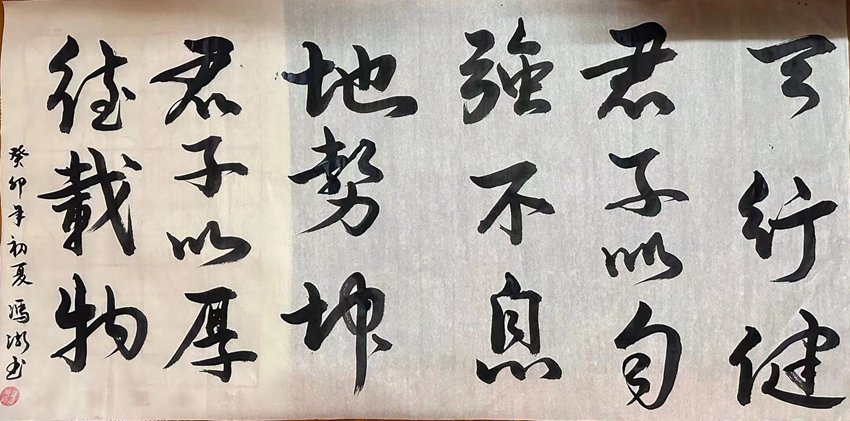 天行健
君子以自
強不息
地勢坤
君子以厚
德載物
癸卯年初夏馮書